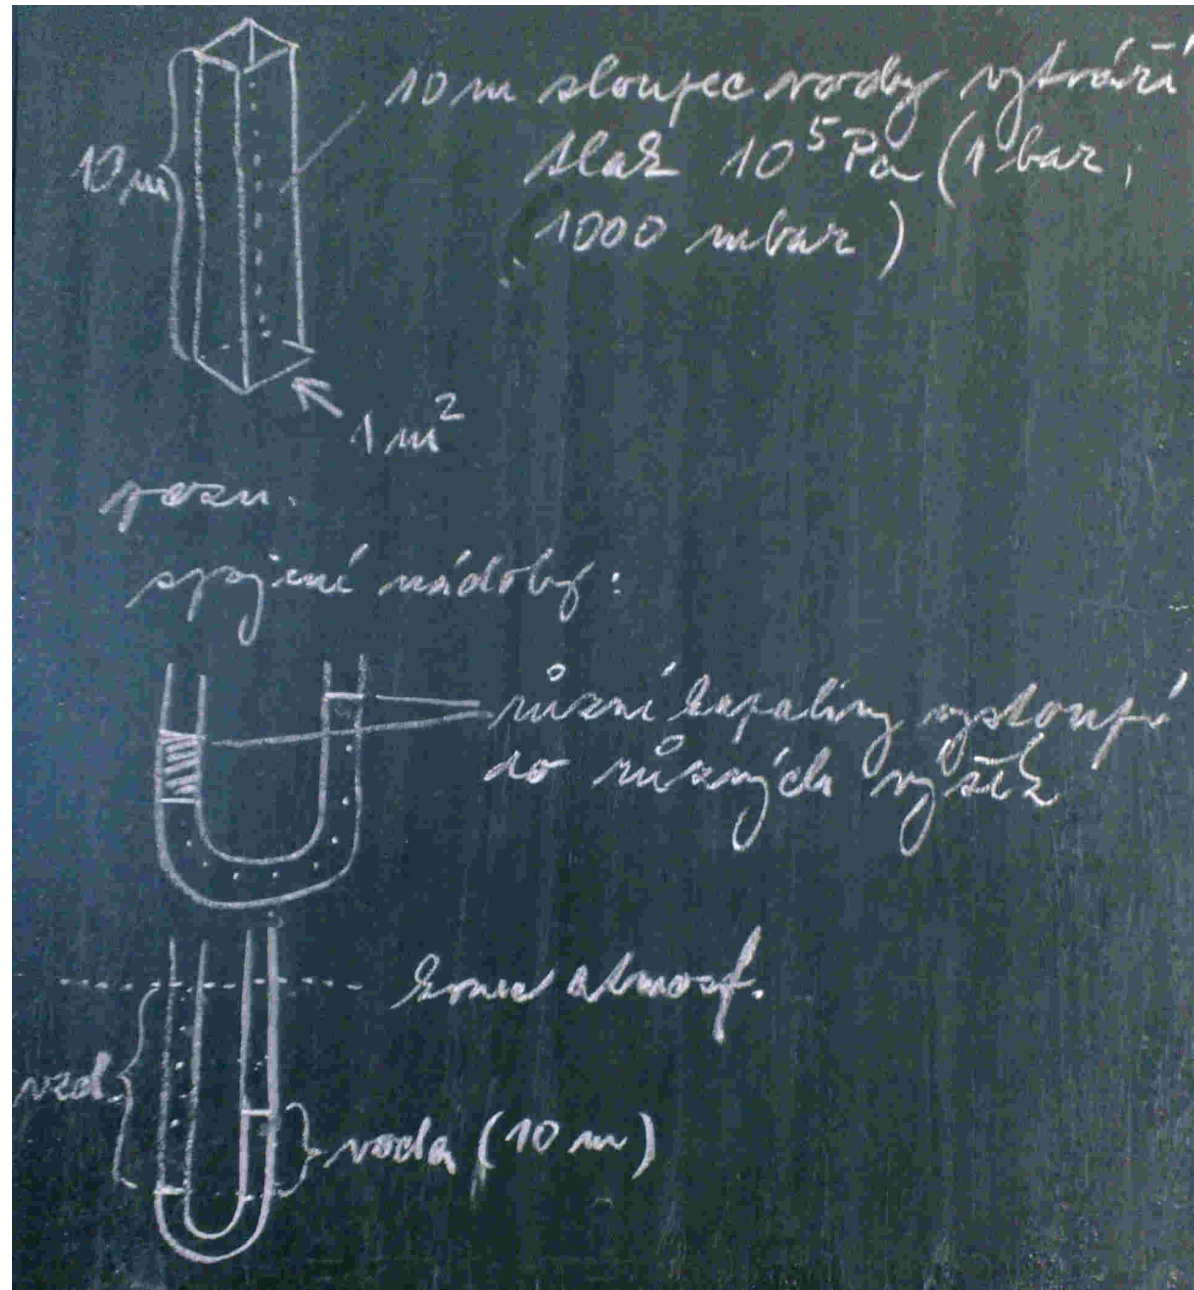 10 m sloupec vody vytváří
tlak 10⁵ Pa (1 bar,
1000 mbar)
10 m
1 m²
pozn.
spojené nádoby:
různé kapaliny vystoupí
do různých výšek
konec atmosf.
vzd.
voda (10 m)